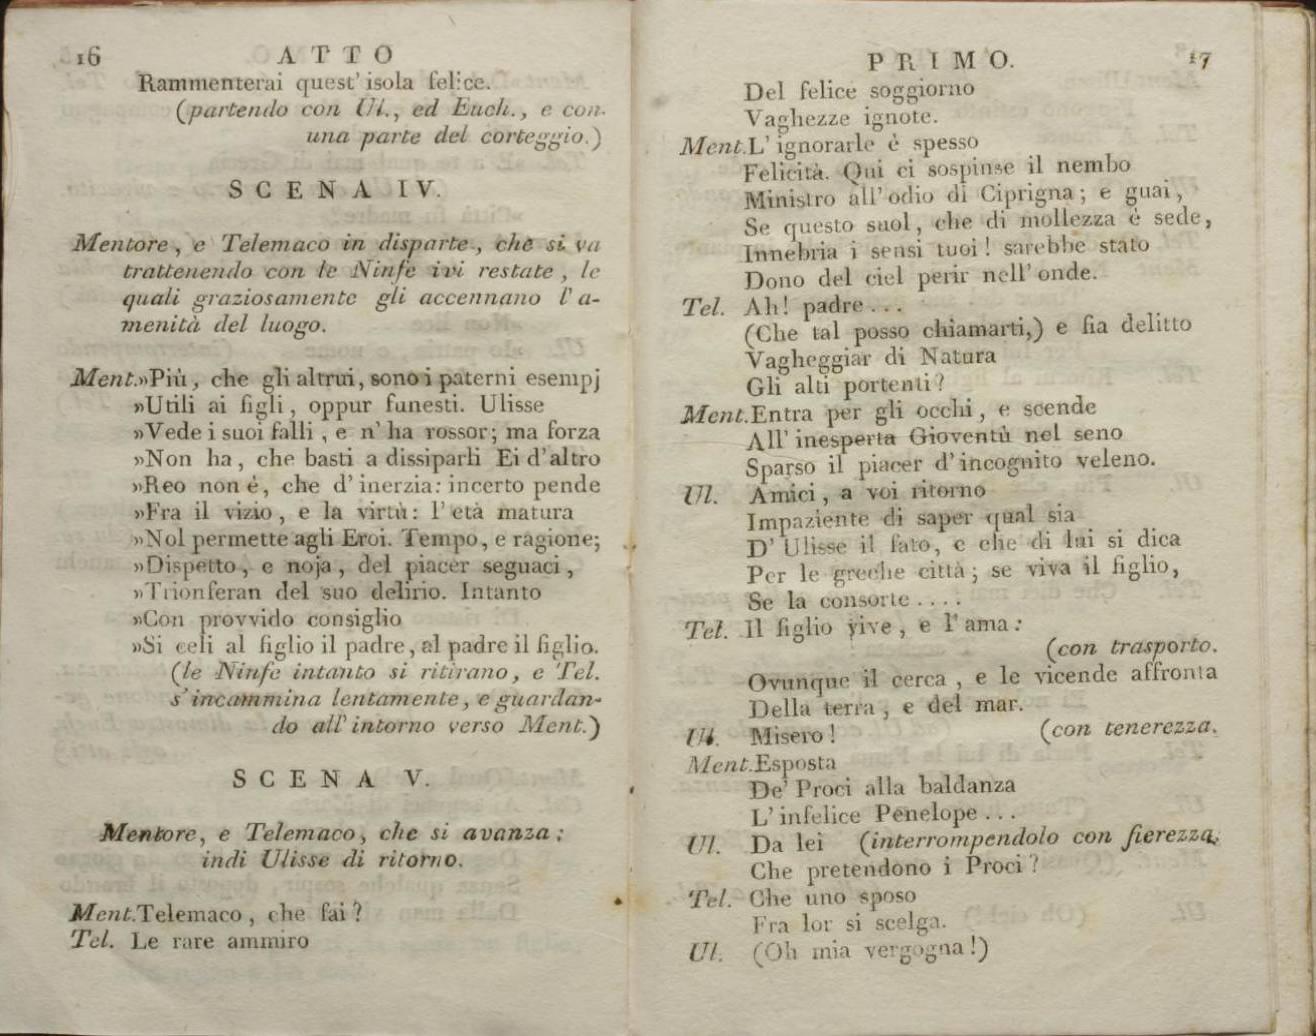 16
ATTO
Rammenterai quest' isola felice.
(partendo con Ul., ed Euch., e con
una parte del corteggio.)
SCENA IV.
Mentore, e Telemaco in disparte, che si va
trattenendo con le Ninfe ivi restate, le
quali graziosamente gli accennano l' a-
menità del luogo.
Ment.»Più, che gli altrui, sono i paterni esempj
»Utili ai figli, oppur funesti. Ulisse
»Vede i suoi falli, e n' ha rossor; ma forza
»Non ha, che basti a dissiparli Ei d'altro
»Reo non é, che d' inerzia: incerto pende
»Fra il vizio, e la virtù: l' età matura
»Nol permette agli Eroi. Tempo, e ragione;
»Dispetto, e noja, del piacer seguaci,
»Trionferan del suo delirio. Intanto
»Con provvido consiglio
»Si celi al figlio il padre, al padre il figlio.
(le Ninfe intanto si ritirano, e Tel.
s'incammina lentamente, e guardan-
do all' intorno verso Ment.)
SCENA V.
Mentore, e Telemaco, che si avanza:
indi Ulisse di ritorno.
Ment.Telemaco, che fai?
Tel. Le rare ammiro
PRIMO.
17
Del felice soggiorno
Vaghezze ignote.
Ment.L' ignorarle è spesso
Felicità. Qui ci sospinse il nembo
Ministro all' odio di Ciprigna; e guai,
Se questo suol, che di mollezza è sede,
Innebria i sensi tuoi! sarebbe stato
Dono del ciel perir nell' onde.
Tel. Ah! padre...
(Che tal posso chiamarti,) e fia delitto
Vagheggiar di Natura
Gli alti portenti?
Ment.Entra per gli occhi, e scende
All' inesperta Gioventù nel seno
Sparso il piacer d' incognito veleno.
Ul. Amici, a voi ritorno
Impaziente di saper qual sia
D' Ulisse il fato, e che di lui si dica
Per le greche città; se viva il figlio,
Se la consorte....
Tel. Il figlio vive, e l' ama:
(con trasporto.
Ovunque il cerca, e le vicende affronta
Della terra, e del mar.
Ul. Misero! (con tenerezza.
Ment.Esposta
De' Proci alla baldanza
L' infelice Penelope...
Ul. Da lei (interrompendolo con fierezza.
Che pretendono i Proci?
Tel. Che uno sposo
Fra lor si scelga.
Ul. (Oh mia vergogna!)